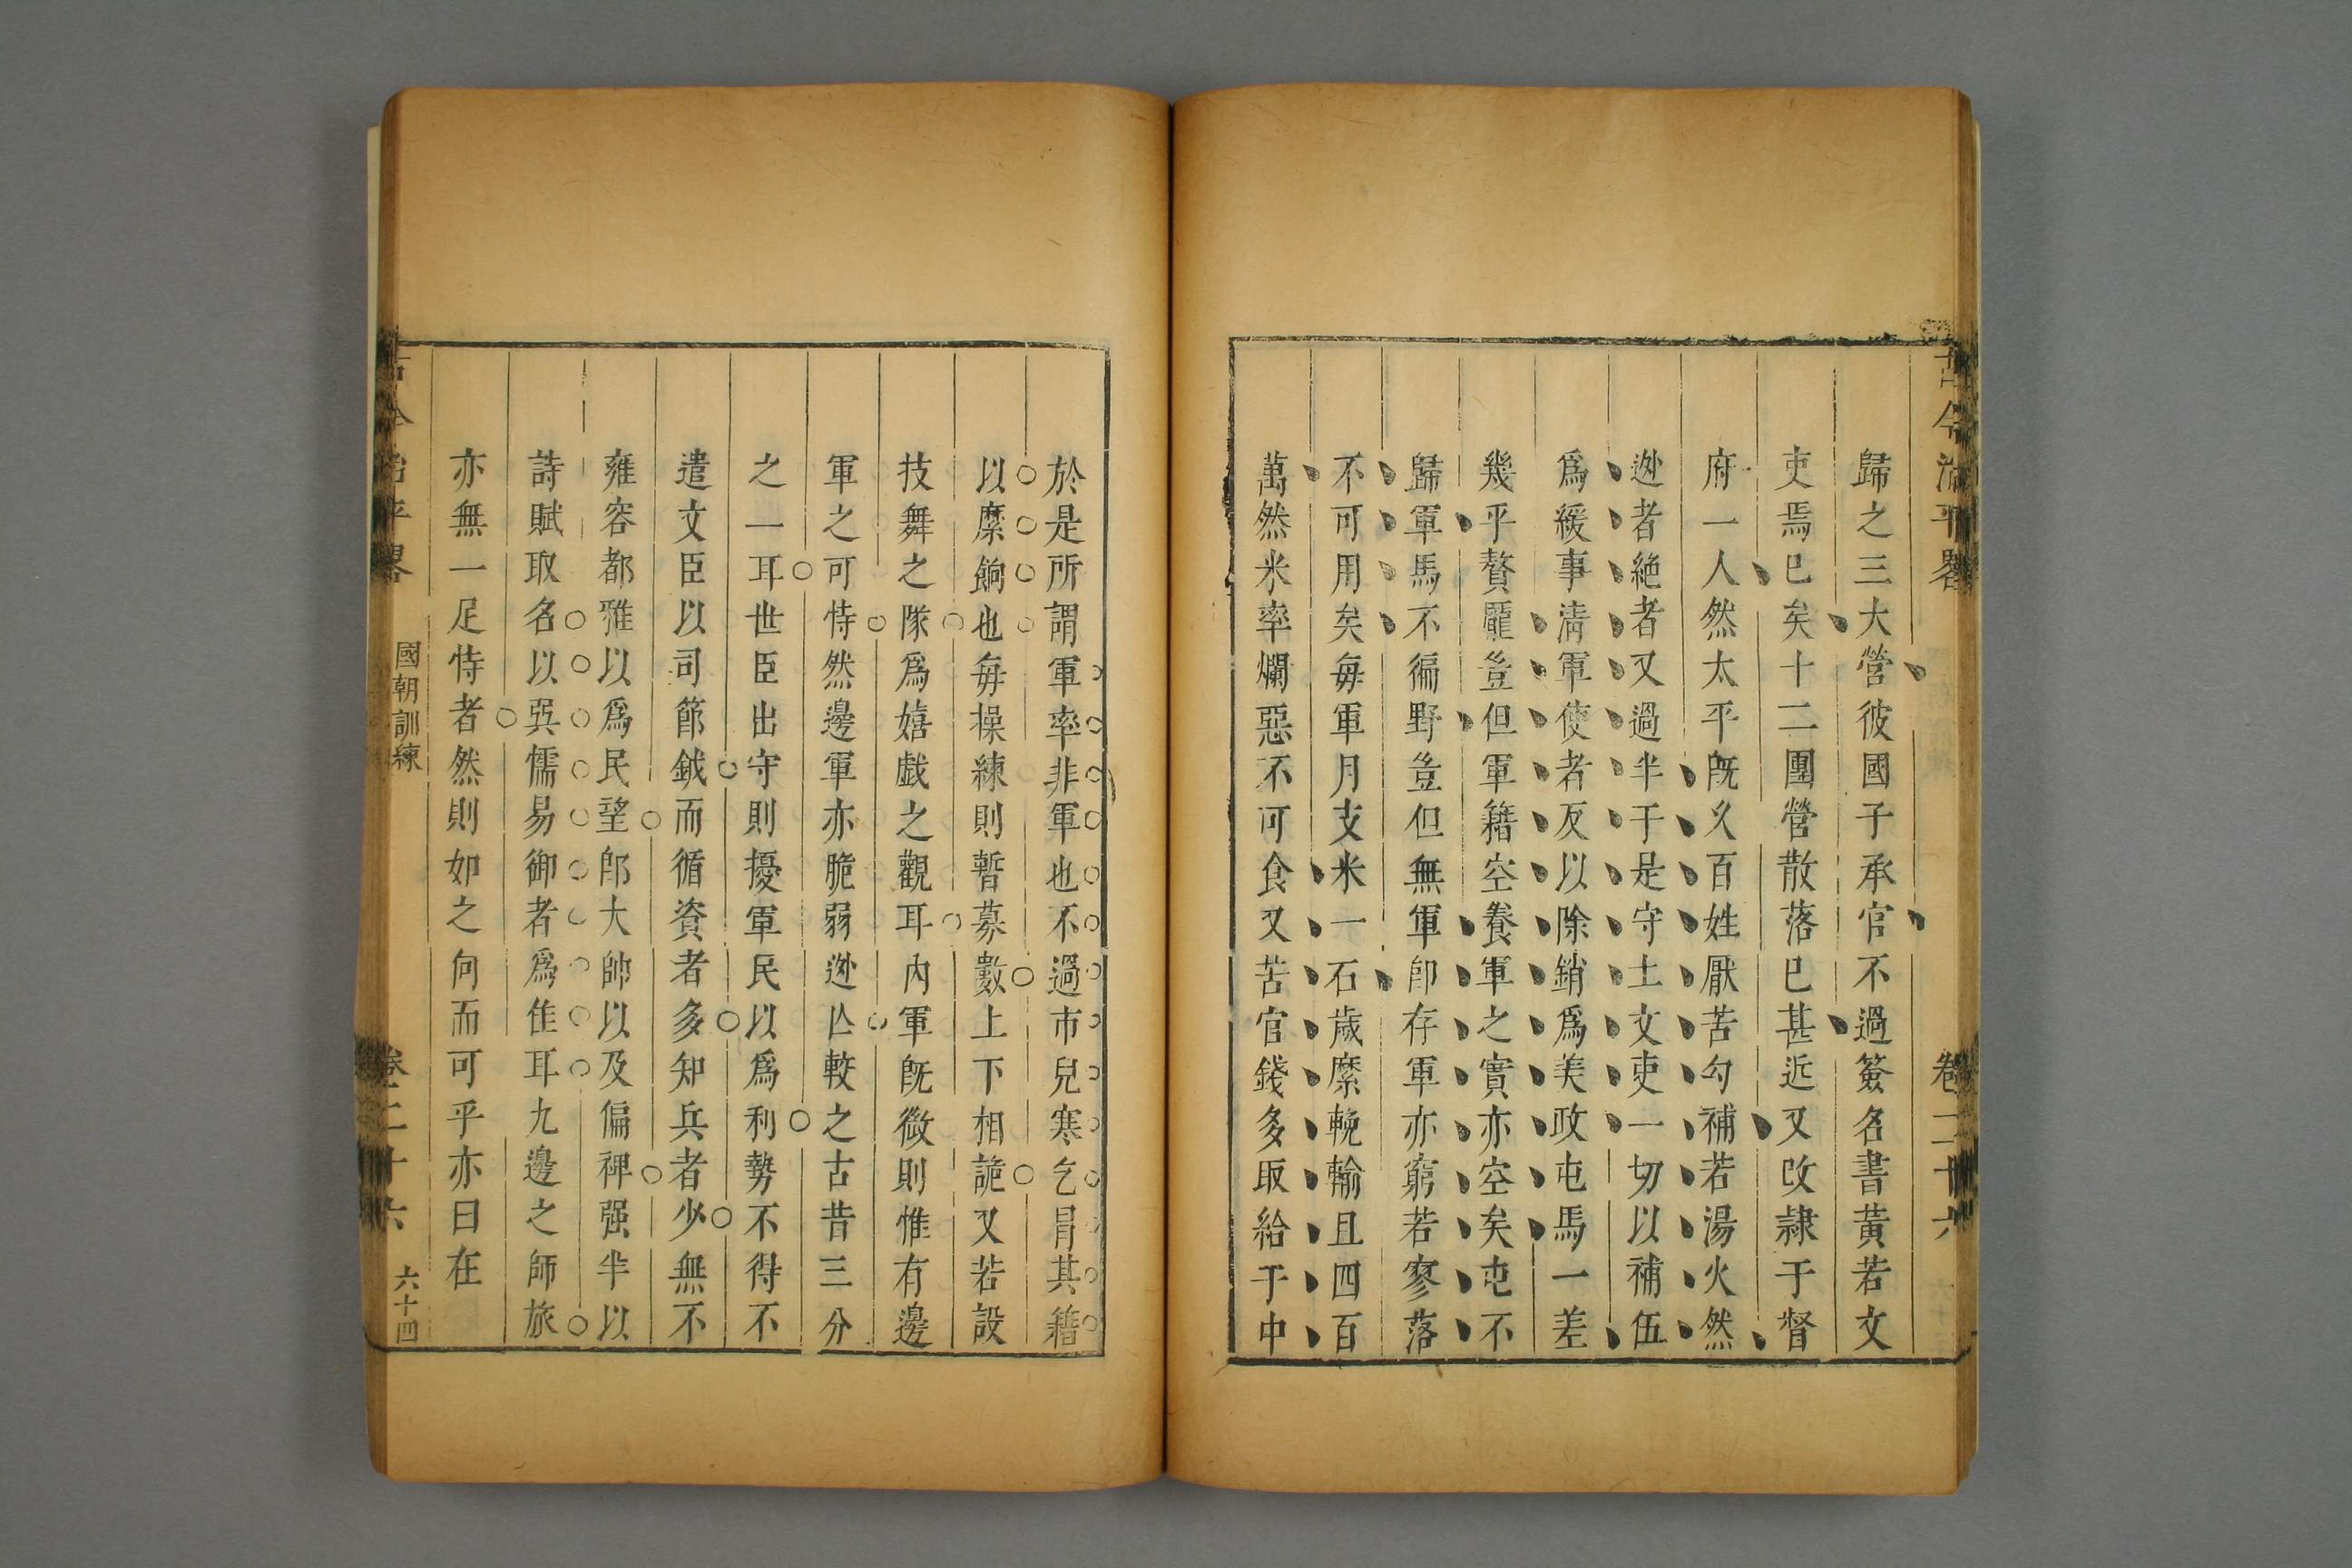 古今治平畧
卷二十六
歸之三大營彼國子承官不過簽名書黃若文
吏焉已矣十二團營散落已甚近又改隷于督
府一人然太平旣久百姓厭苦勾補若湯火然
迯者絶者又過半于是守土文吏一切以補伍
爲緩事淸軍使者反以除銷爲美政屯馬一差
幾乎贅龎豈但軍籍空養軍之實亦空矣屯不
歸軍馬不徧野豈但無軍卽存軍亦窮若寥落
不可用矣每軍月支米一石歲縻輓輸且四百
萬然米率爛惡不可食又苦官錢多取給于中
於是所謂軍率非軍也不過市兒寒乞冐其籍
以縻餉也每操練則暫募數上下相詭又若設
技舞之隊爲嬉戲之觀耳內軍旣微則惟有邊
軍之可恃然邊軍亦脆弱迯亾較之古昔三分
之一耳世臣出守則擾軍民以爲利勢不得不
遣文臣以司節鉞而循資者多知兵者少無不
雍容都雅以爲民望郎大帥以及偏裨强半以
詩賦取名以巽懦易御者爲佳耳九邊之師旅
亦無一足恃者然則如之何而可乎亦曰在
古今治平畧
國朝訓練
卷二十六
六十四